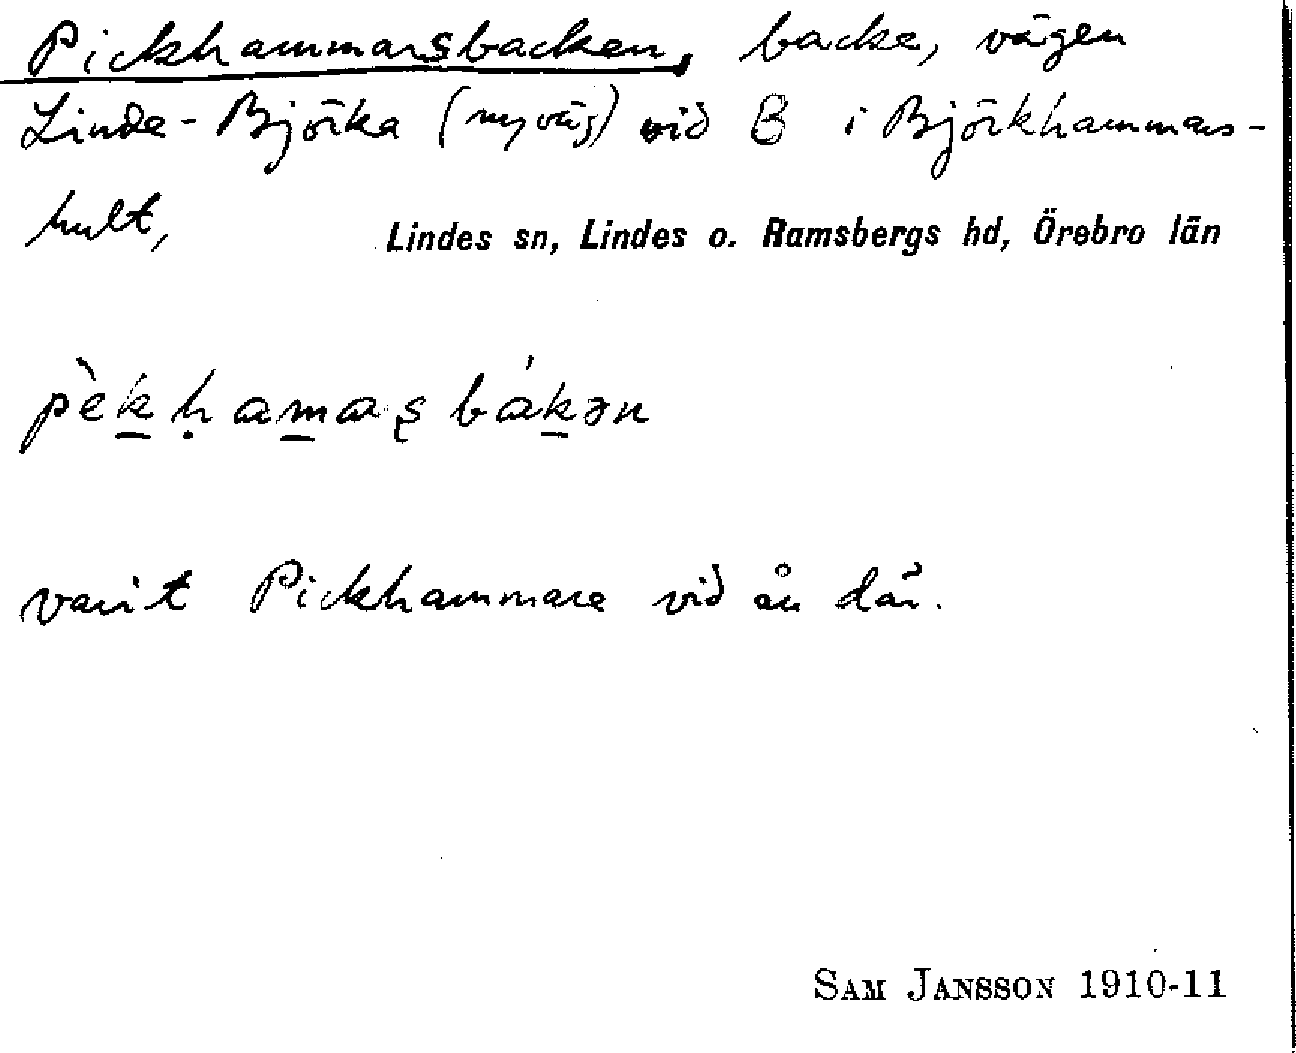 Pickhammarsbacken, backe, vägen
Linde-Björka (nyväg) vid B i Björkhammars-
hult,
Lindes sn, Lindes o. Ramsbergs hd, Örebro län
pèk̲ḥam̲aʂbák̲ən
varit Pickhammare vid ån där.
SAM JANSSON 1910-11